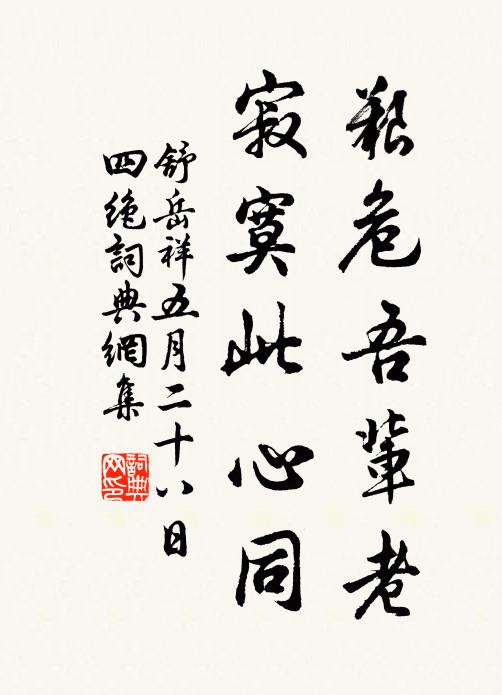 艱危吾輩老
寂寞此心同
舒岳祥五月二十八日
四絶詞典網集
詞典網印